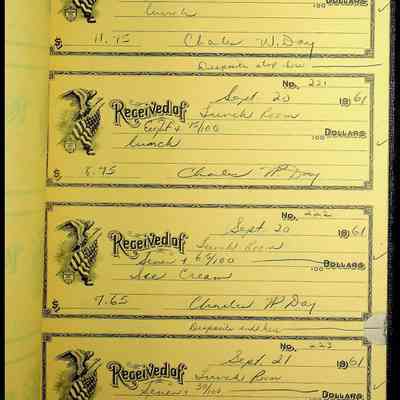 lunch
100 DOLLARS
$ 11.75 Charles W. Day
Deposits stop here
No. 221
Sept 20 1961
Received of Lunch Room
Eight + 75/100 DOLLARS
lunch
$ 8.75 Charles W. Day
No. 222
Sept. 20 1961
Received of Lunch Room
Seven + 65/100 100 DOLLARS
Ice Cream
$ 7.65 Charles W. Day
Deposits
No. 223
Sept. 21 1961
Received of Lunch Room
Seven + 100 DOLLARS